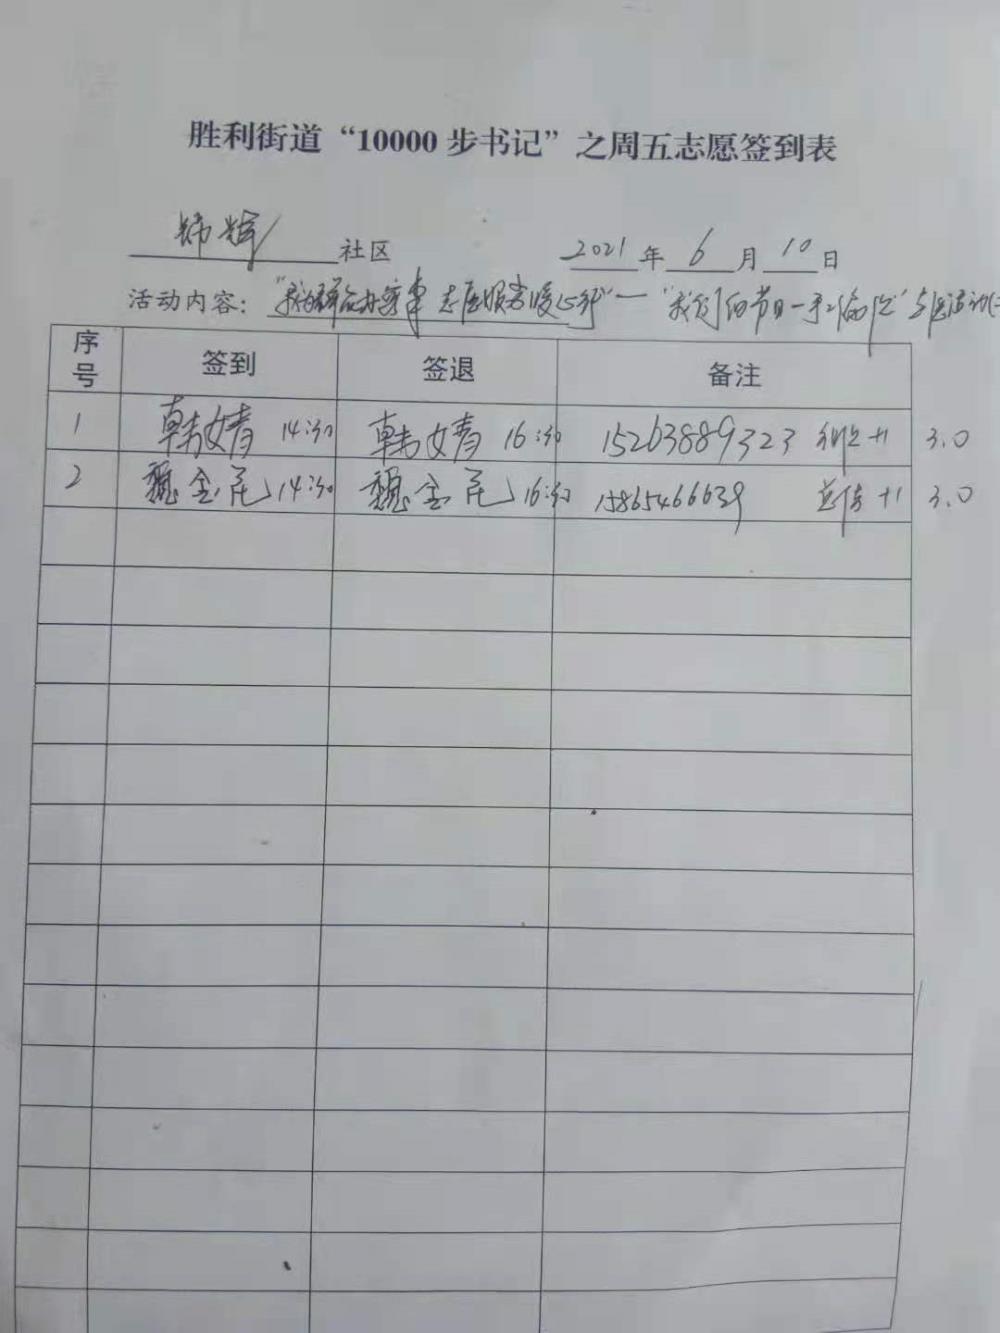 胜利街道“10000步书记”之周五志愿签到表
锦辉社区 2021年6月10日
活动内容：“我为群众办实事 志愿服务暖心行”—“我们的节日—手工
序号 签到 签退 备注
1 韩婧 14:30 韩婧 16:30 15263889323 +1 3.0
2 魏金花 14:30 魏金花 16:30 15865466639 宣传 +1 3.0